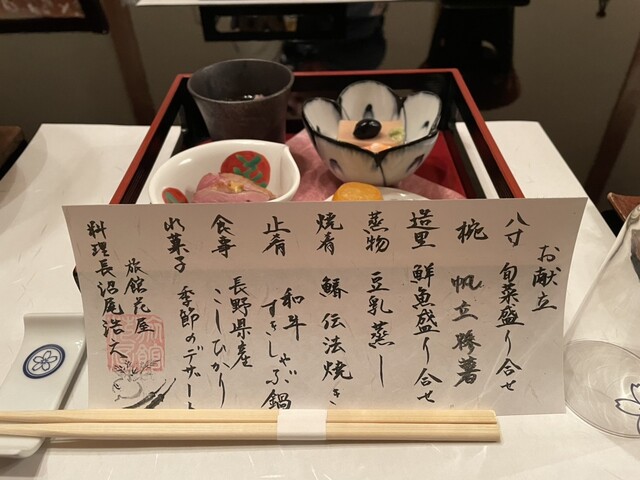 お献立
八寸 旬菜盛り合せ
椀 帆立糝薯
造里 鮮魚盛り合せ
蒸物 豆乳蒸し
焼肴 鰆伝法焼き
止肴 和牛すきしゃぶ鍋
食事 長野県産こしひかり
水菓子 季節のデザート
旅館花屋
料理長 沼尾浩